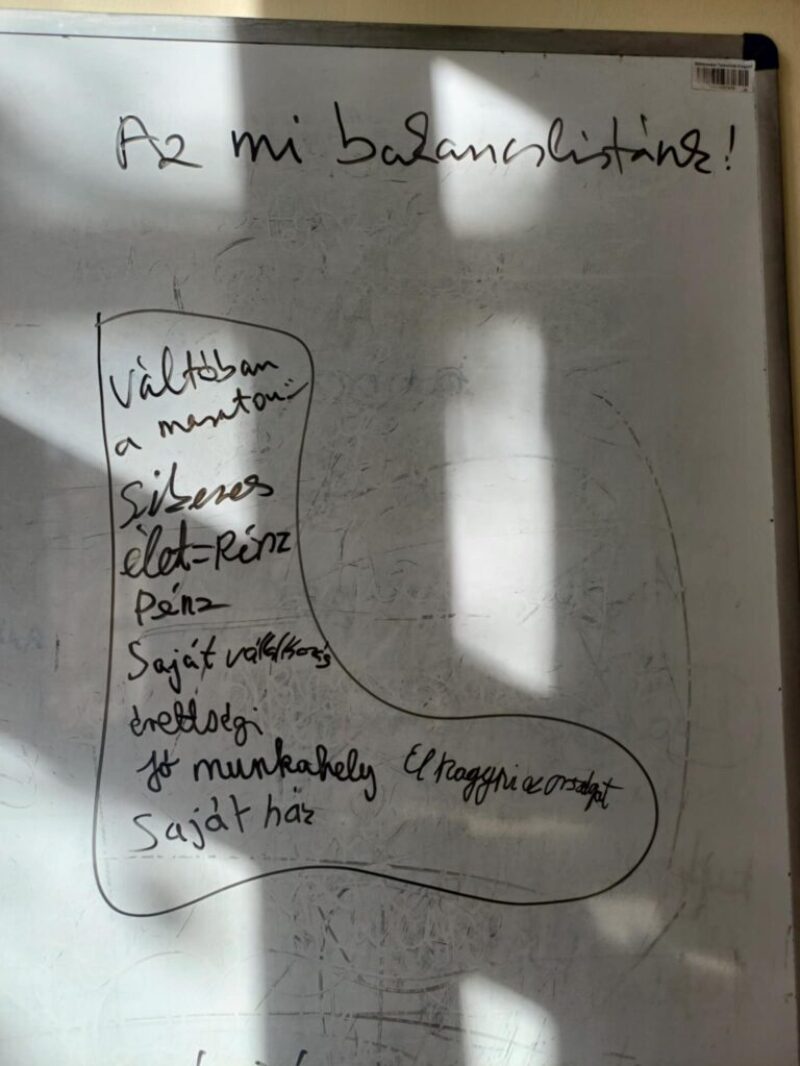 Az mi bakancslistánk!
Váltóban
a maraton
Sikeres
élet=Pénz
Pénz
Saját vállalkozás
érettségi
Jó munkahely El hagyni az országot
Saját ház